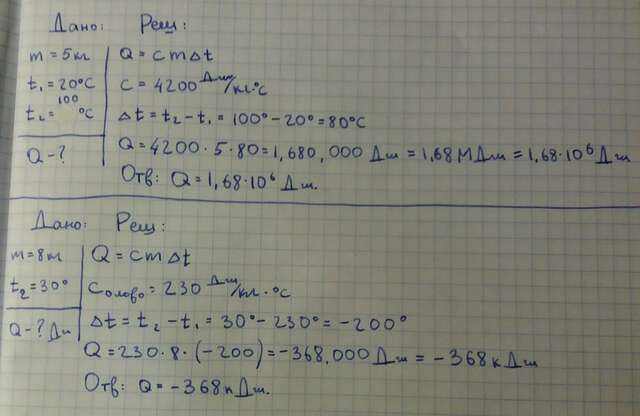 Дано: Реш:
m = 5кг Q = cmΔt
t₁ = 20°C c = 4200 Дж/кг·°C
t₂ = 100 °C Δt = t₂ - t₁ = 100° - 20° = 80°C
Q - ? Q = 4200 · 5 · 80 = 1,680,000 Дж = 1,68 МДж = 1,68·10⁶ Дж
Отв: Q = 1,68·10⁶ Дж.
Дано: Реш:
m = 8кг Q = cmΔt
t₂ = 30° c олово = 230 Дж/кг·°C
Q - ? Дж Δt = t₂ - t₁ = 30° - 230° = -200°
Q = 230 · 8 · (-200) = -368,000 Дж = -368 кДж
Отв: Q = -368 кДж.